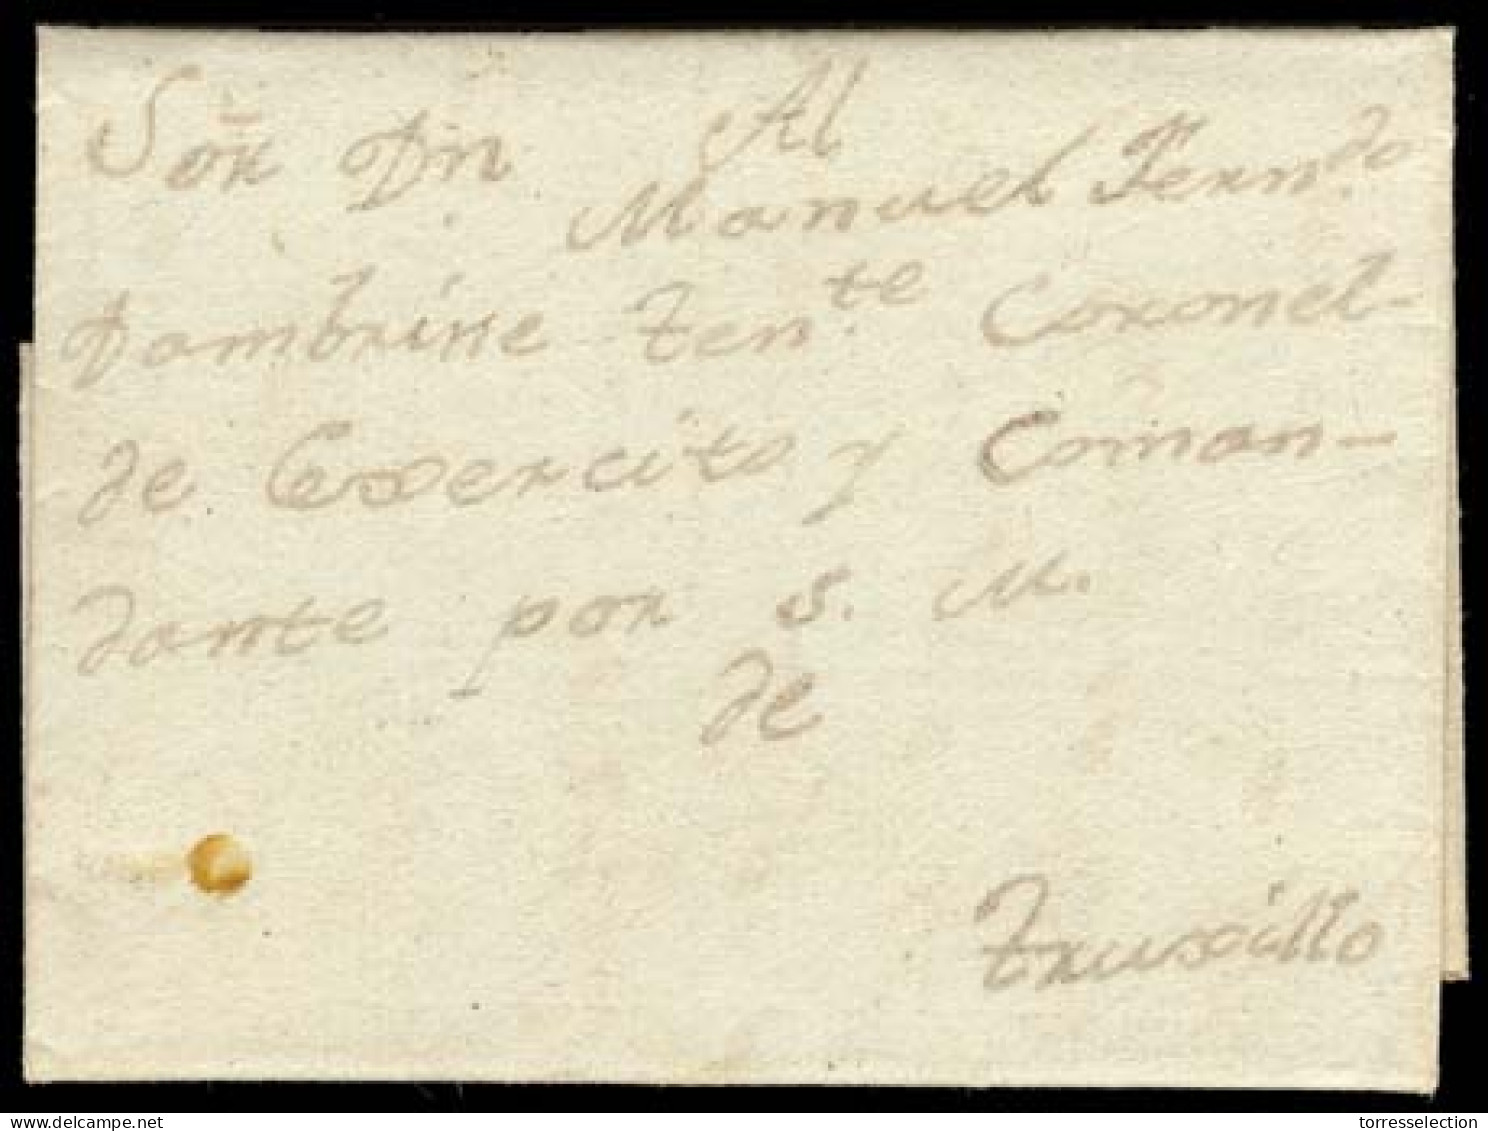 Al
Sor Dn Manuel Ferndo
Dambrine Tente Coronel-
de Exercito y Coman-
dante por S. M.
de
Truxillo
delcampe.net
torresselection